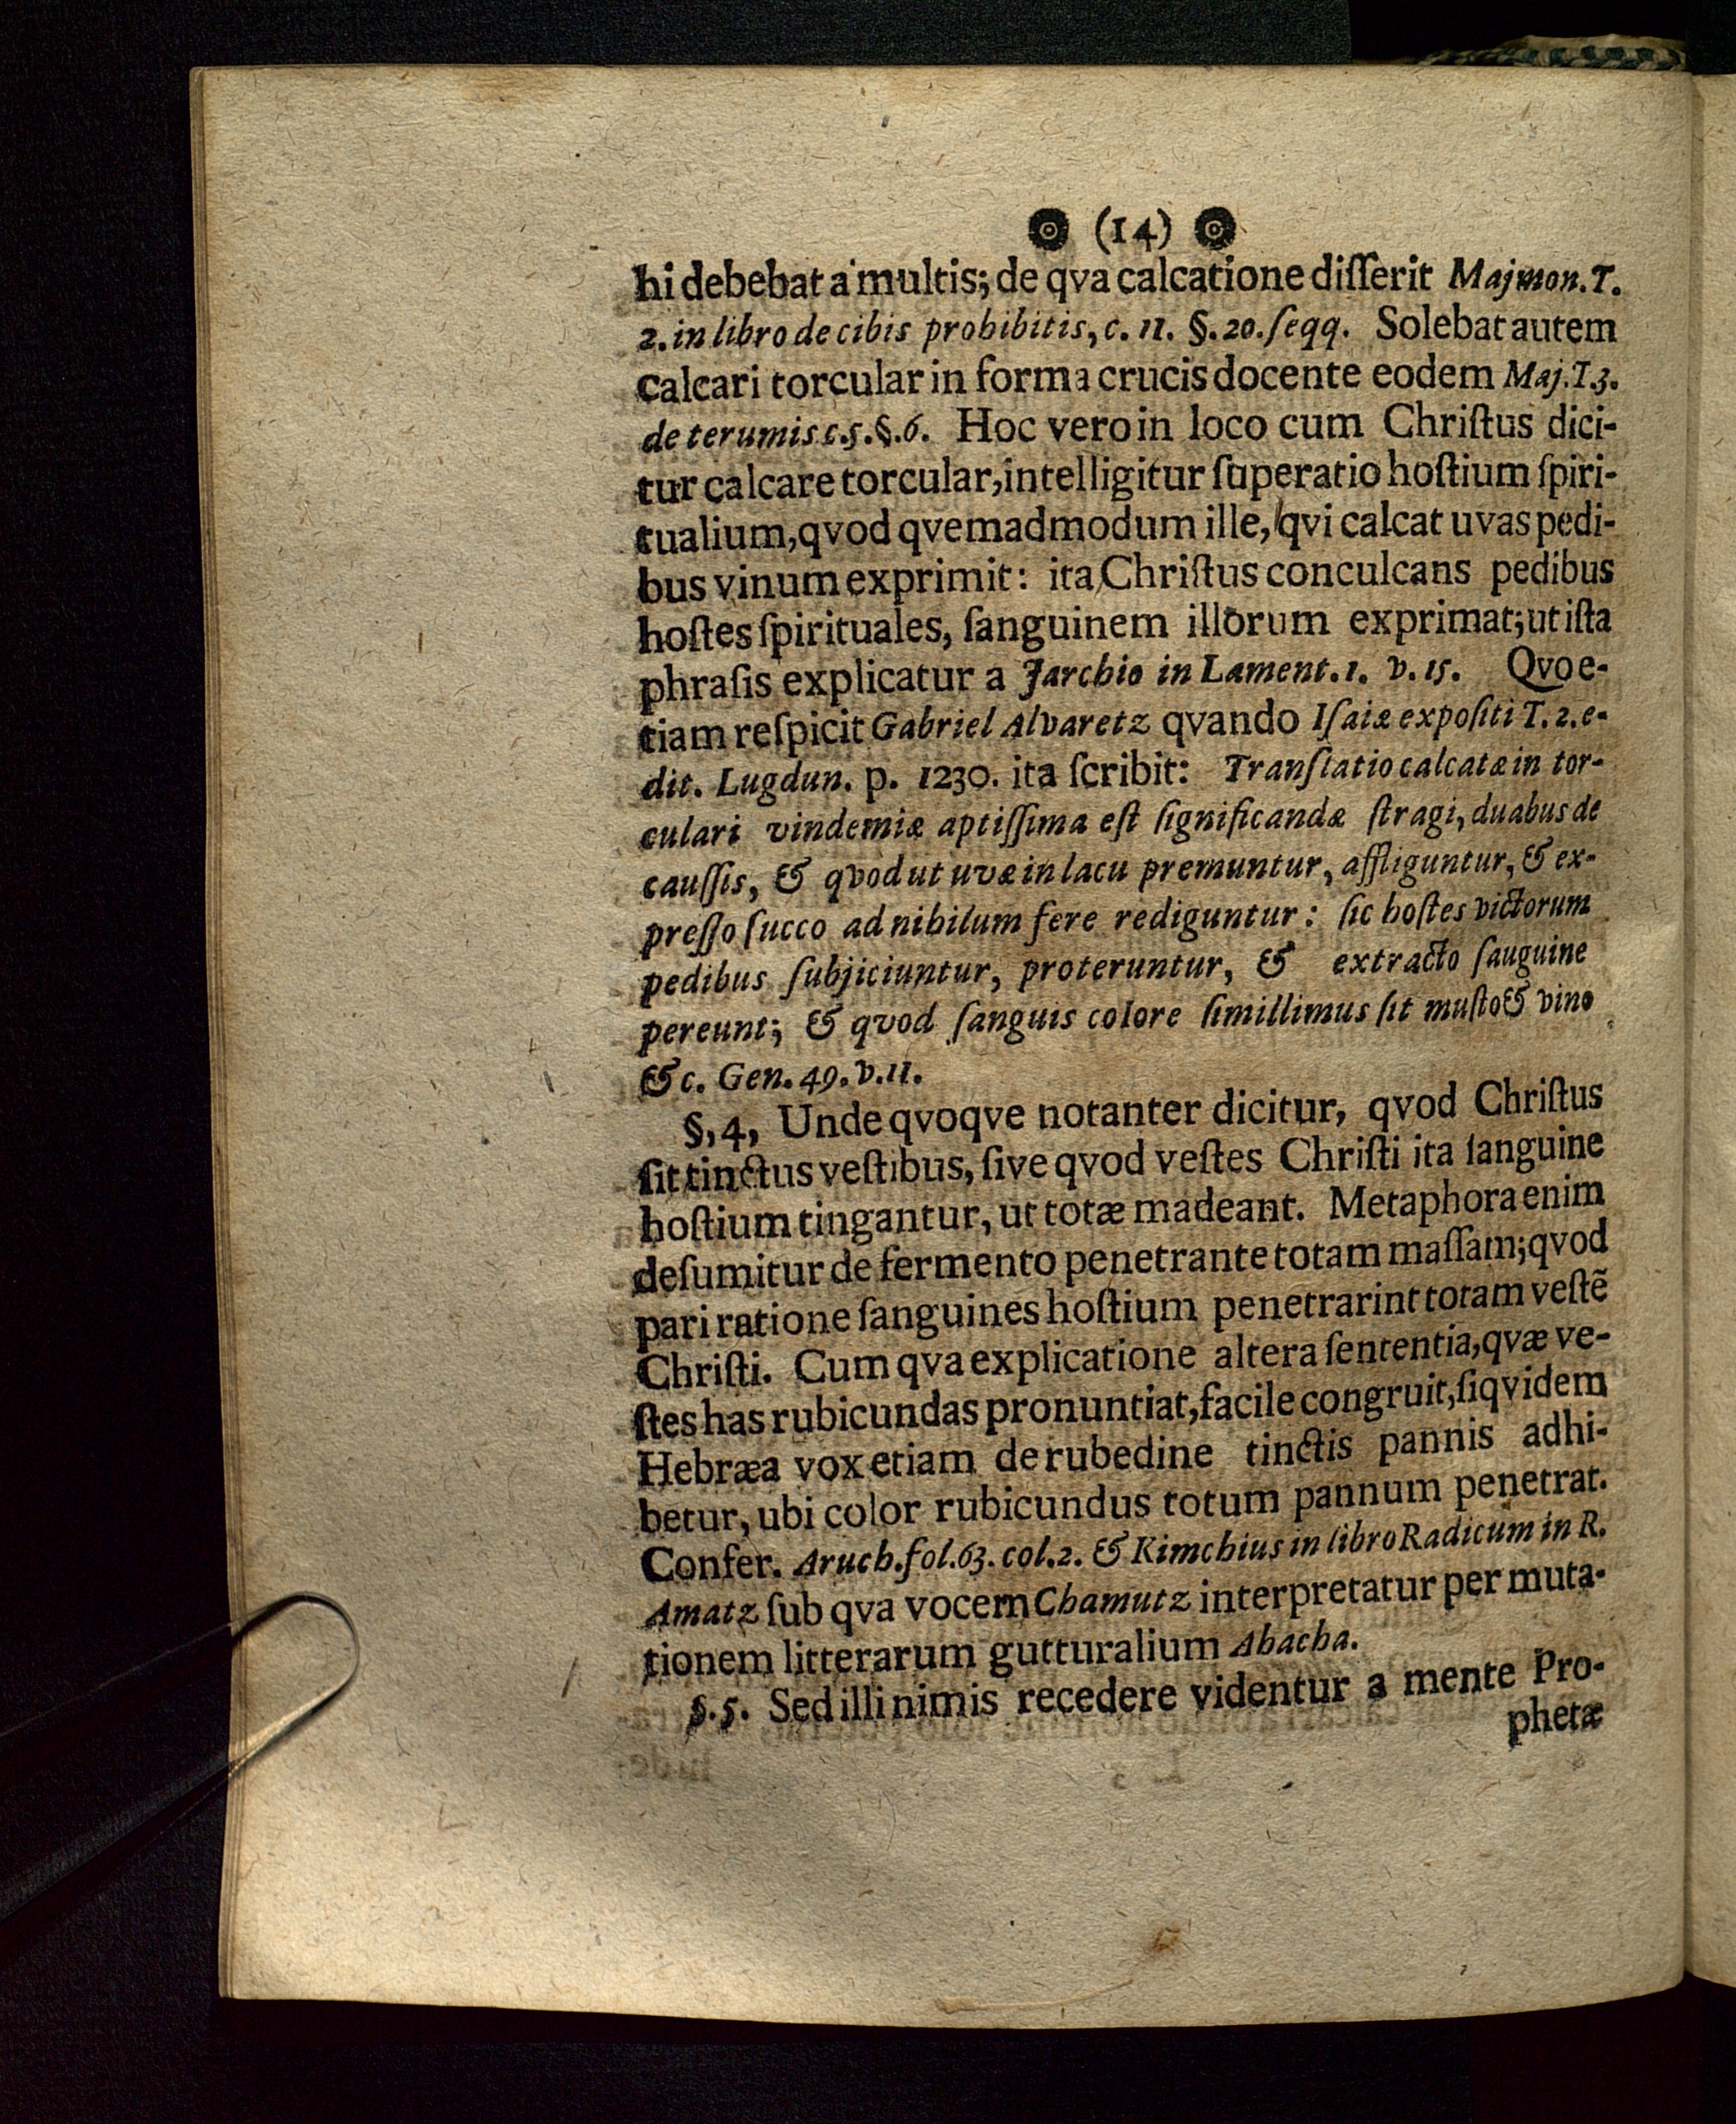 (14)
hi debebat a multis; de qva calcatione disſerit Majmon. T.
2. in libro de cibis prohibitis, c. 11. §. 20. ſeqq. Solebat autem
calcari torcular in forma crucis docente eodem Maj. T. 3.
de terumis c. 5. §. 6. Hoc vero in loco cum Chriſtus dici-
tur calcare torcular, intelligitur ſuperatio hoſtium ſpiri-
tualium, qvod qvemadmodum ille, qvi calcat uvas pedi-
bus vinum exprimit: ita Chriſtus conculcans pedibus
hoſtes ſpirituales, ſanguinem illorum exprimat; ut iſta
phraſis explicatur a Jarchio in Lament. 1. v. 15. Qvo e-
tiam reſpicit Gabriel Alvaretz qvando Iſaiæ expoſiti T. 2. e-
dit. Lugdun. p. 1230. ita ſcribit: Tranſlatio calcatæ in tor-
culari vindemiæ aptiſſima eſt ſignificandæ ſtragi, duabus de
cauſſis, & qvod ut uvæ in lacu premuntur, affliguntur, & ex-
preſſo ſucco ad nihilum fere rediguntur: ſic hoſtes victorum
pedibus ſubjiciuntur, proteruntur, & extracto ſauguine
pereunt; & qvod ſanguis colore ſimillimus ſit muſto & vino
&c. Gen. 49. v. 11.
§, 4, Unde qvoqve notanter dicitur, qvod Chriſtus
ſit tinctus veſtibus, ſive qvod veſtes Chriſti ita ſanguine
hoſtium tingantur, ut totæ madeant. Metaphora enim
deſumitur de fermento penetrante totam maſſam; qvod
pari ratione ſanguines hoſtium penetrarint totam veſtẽ
Chriſti. Cum qva explicatione altera ſententia, qvæ ve-
ſtes has rubicundas pronuntiat, facile congruit, ſiqvidem
Hebræa vox etiam de rubedine tinctis pannis adhi-
betur, ubi color rubicundus totum pannum penetrat.
Confer. Aruch. fol. 63. col. 2. & Kimchius in libro Radicum in R.
Amatz ſub qva vocem Chamutz interpretatur per muta-
tionem litterarum gutturalium Ahacha.
§. 5. Sed illi nimis recedere videntur a mente Pro-
phetæ